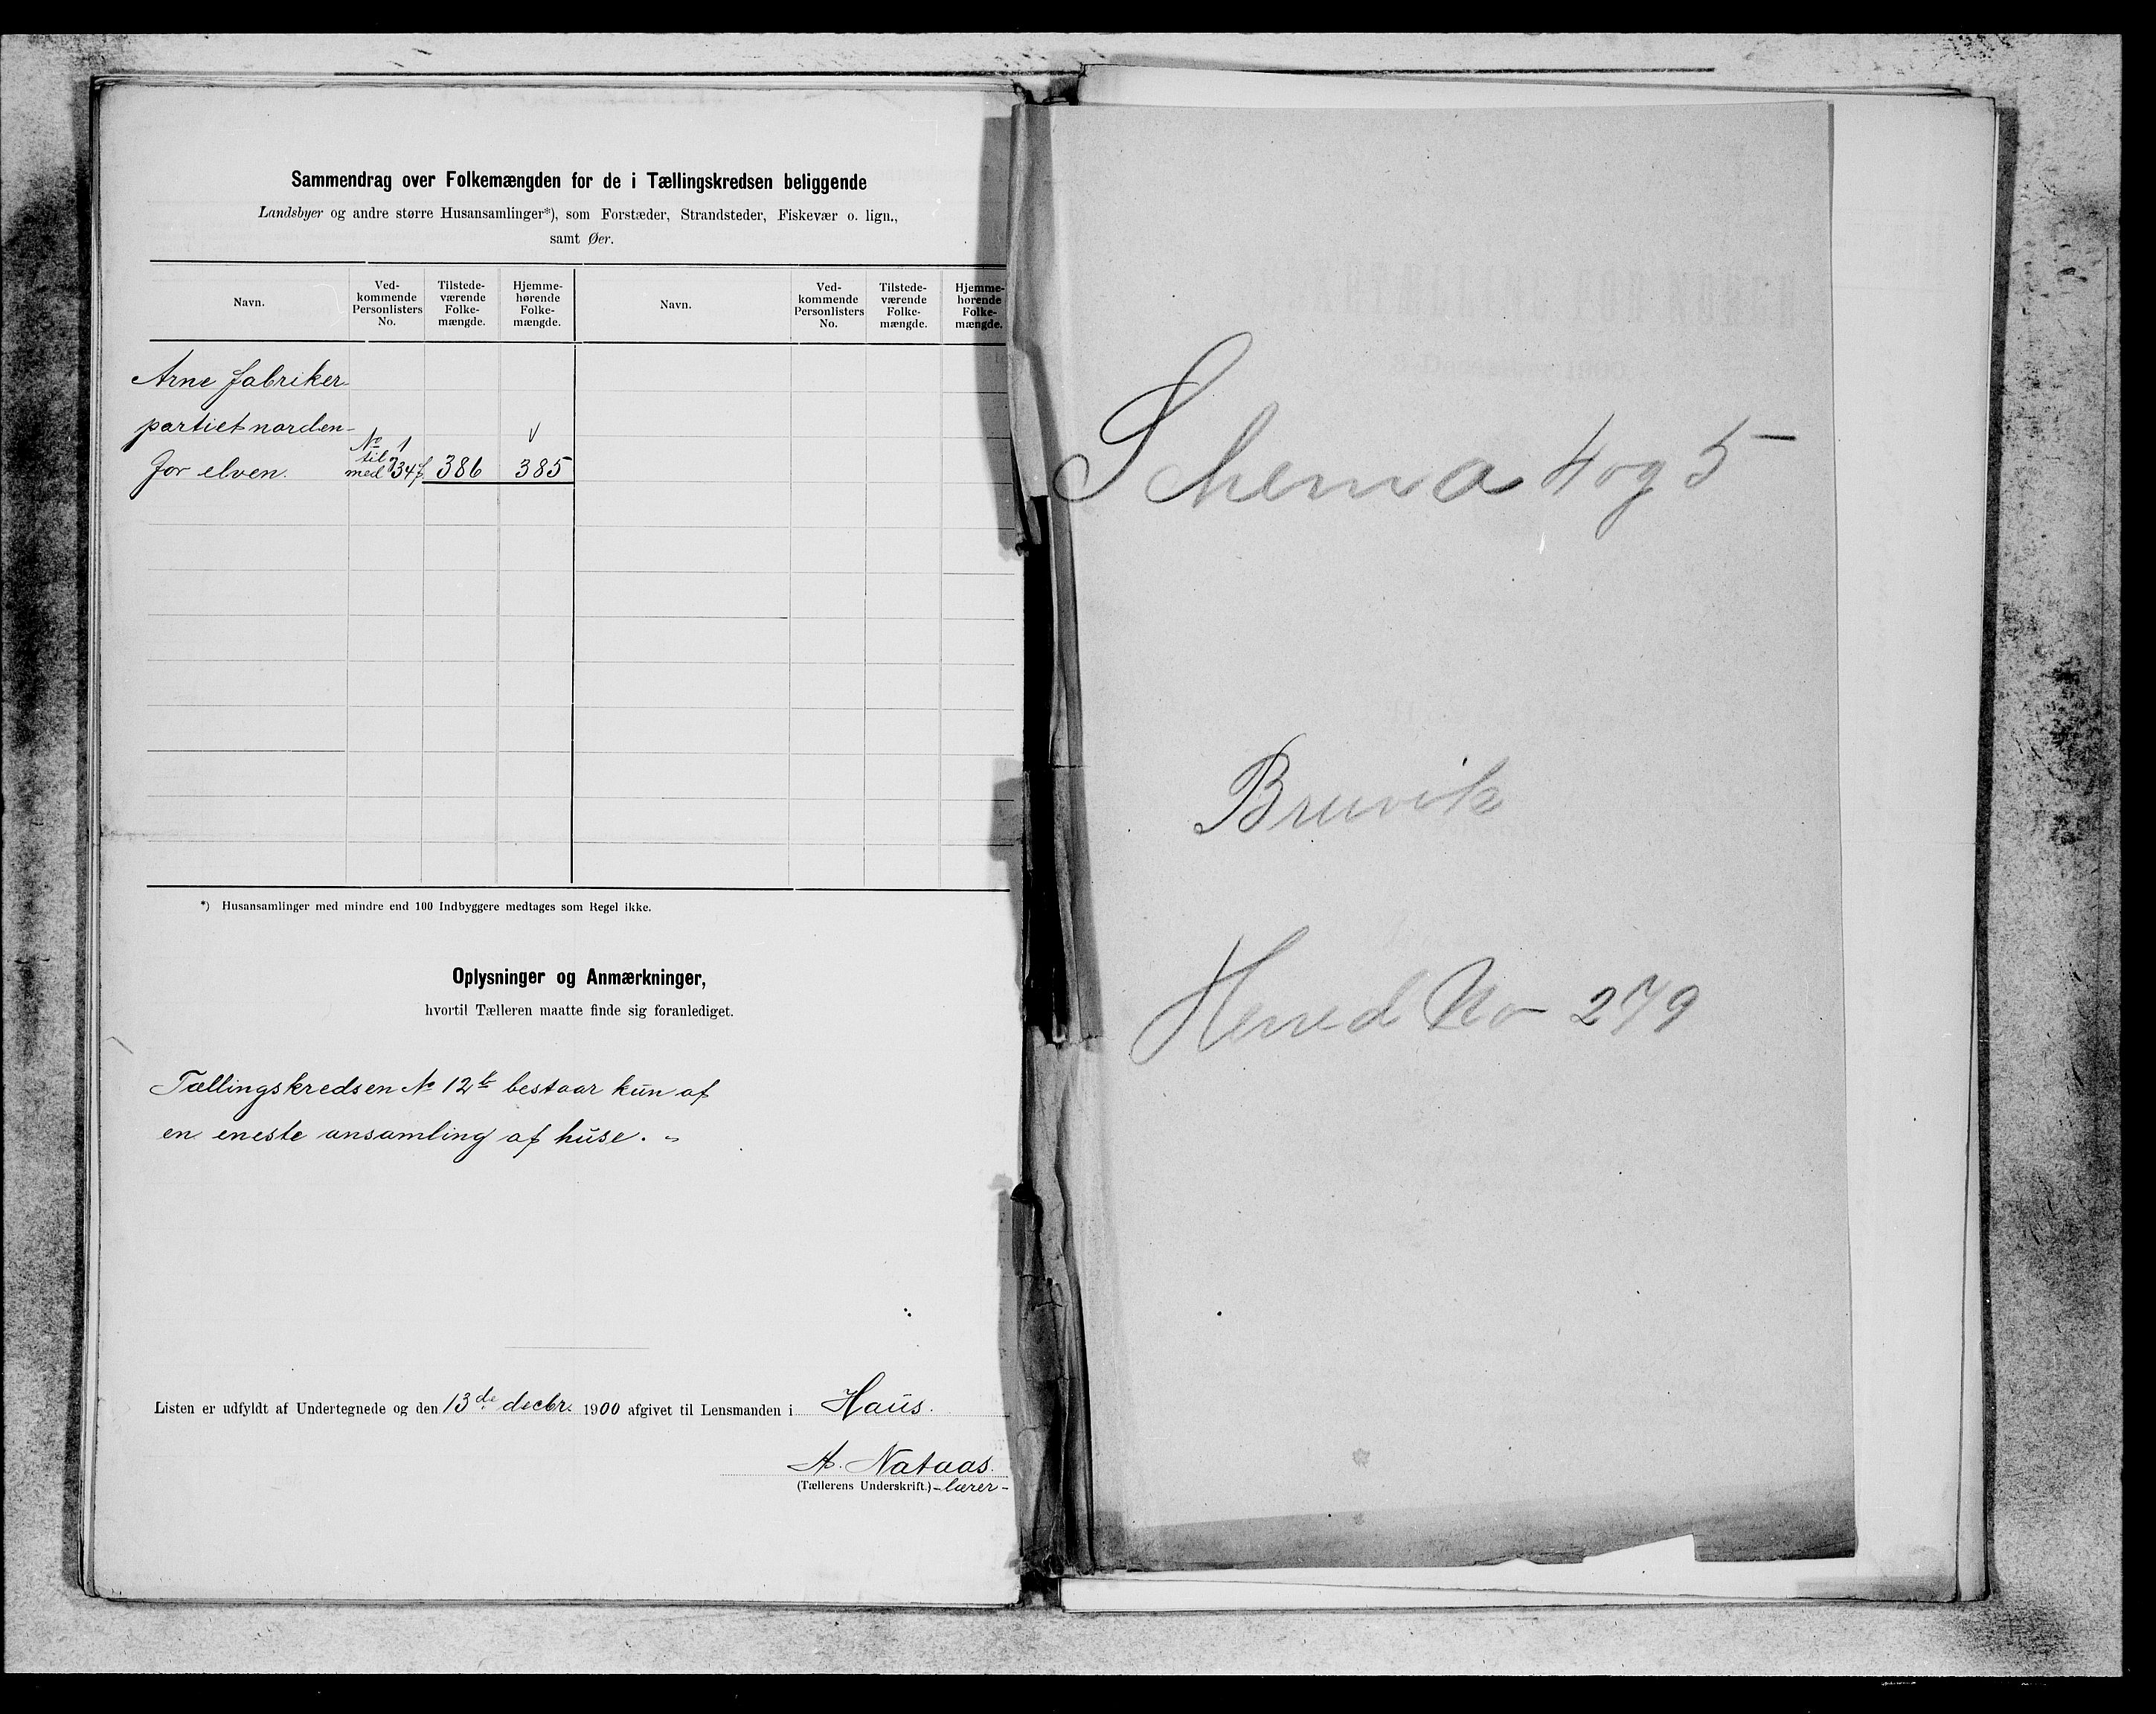 Sammendrag over Folkemængden for de i Tællingskredsen beliggende
Landsbyer og andre større Husansamlinger*), som Forstæder, Strandsteder, Fiskevær o. lign.,
samt Øer.
Navn. Ved-kommende Personlisters No. Tilstede-værende Folke-mængde. Hjemme-hørende Folke-mængde. Navn. Ved-kommende Personlisters No. Tilstede-værende Folke-mængde. Hjemme-hørende Folke-mængde.
Arne fabriker
partiet norden-
for elven. No 1 til med 34 386 385
*) Husansamlinger med mindre end 100 Indbyggere medtages som Regel ikke.
Oplysninger og Anmærkninger,
hvortil Tælleren maatte finde sig foranlediget.
Tællingskredsen No 12 b bestaar kun af
en eneste ansamling af huse.
Listen er udfyldt af Undertegnede og den 13de decbr. 1900 afgivet til Lensmanden i Haus.
A. Nataas.
(Tællerens Underskrift.) - lærer -
Schema 4 og 5
Bruvik
Herred No 279